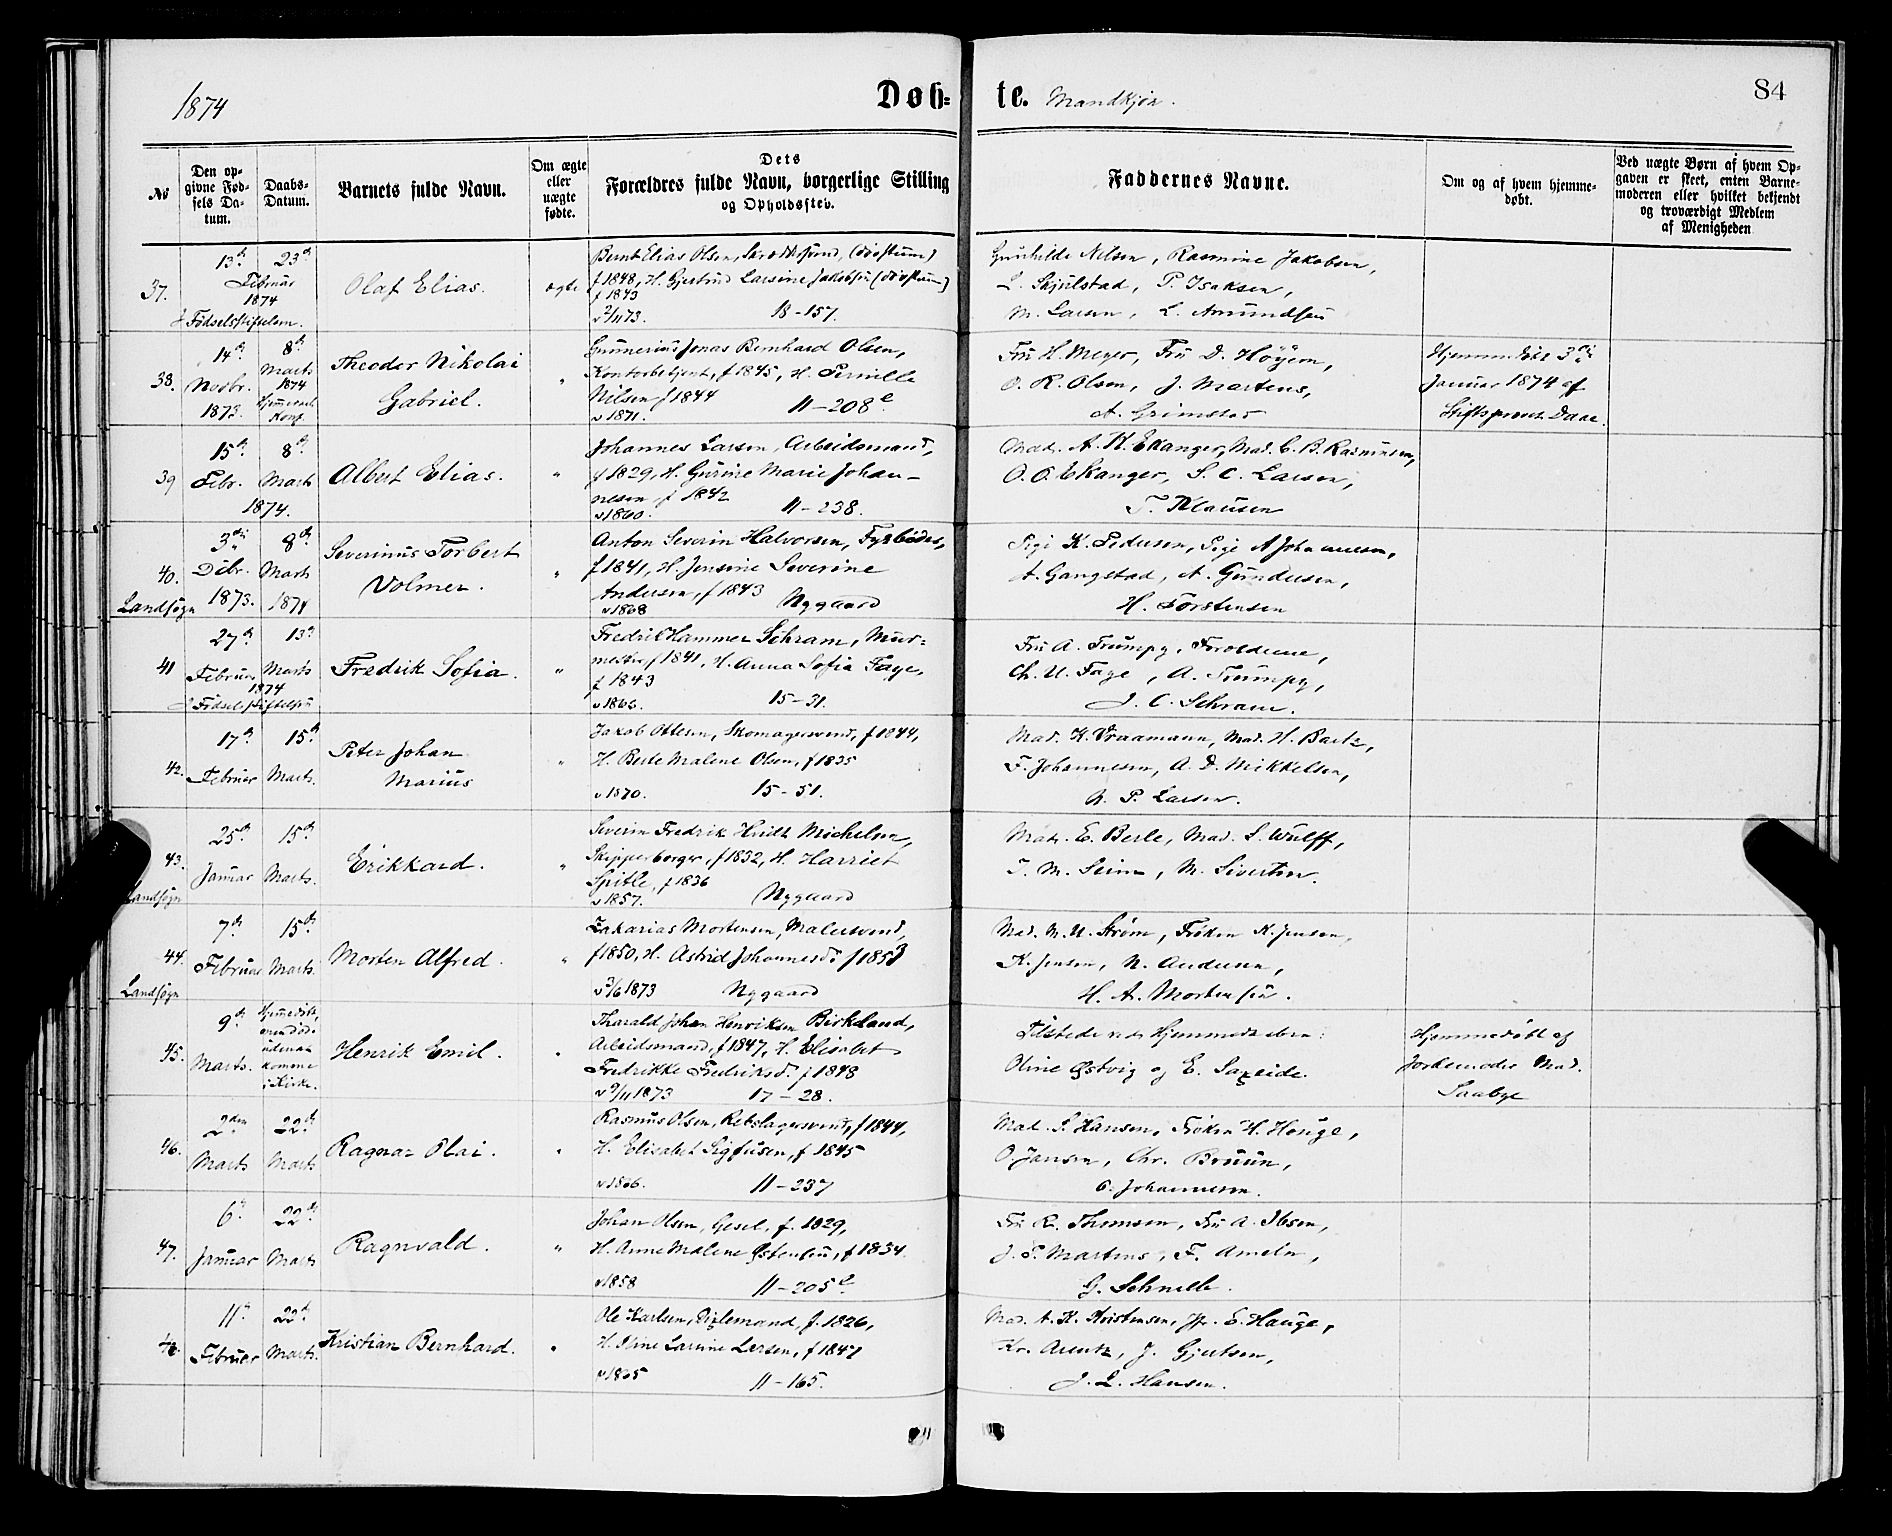 1874
Døb- te. Mandkjøn.
84
No
Den opgivne Fødsels Datum.
Daabs-Datum.
Barnets fulde Navn.
Om ægte eller uægte fødte.
Dets Forældres fulde Navn, borgerlige Stilling og Opholdssted.
Faddernes Navne.
Om og af hvem hjemmedøbt.
Ved uægte Børn af hvem Opgaven er skeet, enten Barnemoderen eller hvilket bekjendt og troværdigt Medlem af Menigheden
37. 13de 23de Februar 1874
Fødselsstiftelsen.
Olaf Elias. ægte
Bernt Elias Olsen,
f 1848, H. Gjertrud Larsine Jakobsen
f 1843
v 2/11 73. 18-157.
Gunhilde Nilsen, Rasmine Jakobsen,
L. Skjulstad, P. Isaksen,
M. Larsen, L. Amundsen
38. 14de Novbr. 1873. 8de Marts 1874
Theodor Nikolai
Gabriel. "
Gunnerius Jonas Bernhard Olsen,
Kontorbetjent, f 1845, H. Pernille
Nilsen f 1844
v 1871. 11-208 e.
Fru H. Meyer, Fru D. Höyem,
O. R. Olsen, J. Martens,
A. Grimstad
Hjemmedöbt 3die
Januar 1874 af
Stiftsprovst Daae.
39 15de Febr. 8de Marts 1874.
Albert Elias. "
Johannes Larsen, Arbeidsmand,
f 1829, H. Gurine Marie Johan-
nesen, f 1842
v 1860. 11-238.
Mad. A. K. Ekanger, Mad. C. B. Rasmussen,
O. O. Ekanger, S. C. Larsen,
T. Klausen
40. Landsogn 3die Debr. 1873. 8de Marts 1874
Severinus Torbert
Volmer. "
Anton Severin Halvorsen, Fyrböder,
f 1841, H. Jensine Severine
Andersen, f 1843
v 1868 Nygaard
Pige K. Pedersen, Pige A Johannesen,
A. Gangstad, A. Gundersen,
H. Torstensen
41 27de 13de Februar Marts 1874
Fødselsstiftelsen
Fredrik Sofia. "
Fredrik Hammer Schram, Mur-
mester, f 1841, H. Anna Sofia Faye,
f 1843
v 1866. 15-31.
Fru A. Trumpy, Forældrene,
Ch. U. Faye, A. Trumpy,
J. C. Schram.
42. 17de Februar 15de Marts.
Peter Johan
Marius "
Jakob Ottesen, Skomagersvend, f 1844,
H. Berte Malene Olsen, f 1835
v 1870. 15-51.
Mad. K. Vraamann, Mad. H. Bartz,
F. Johannesen, A. D. Mikkelsen,
N. P. Larsen.
43. Landsogn 25de Januar 15de Marts.
Erikkard. "
Severin Fredrik Hvidt Michelsen,
Skipperborger, f 1832, H. Harriet
Spittle, f 1836
v 1857. Nygaard
Mad. E. Berle, Mad. S. Wulff,
T. M. Seim, M. Sivertsen.
44. Landsogn 7de Februar 15de Marts.
Morten Alfred. "
Zakarias Mortensen, Malersvend,
f 1850, H. Astrid Johannesdr f 1853
v 3/6 1873 Nygaard
Mad. M. U. Ström, Fröken K. Jensen,
K. Jensen, N. Andersen,
H. A. Mortensen.
45. 9de Marts. Hjemmedöbt, men döde uden at komme i Kirke.
Henrik Emil. "
Tharald Johan Henriksen Birkeland,
Arbeidsmand, f 1847, H. Elisabet
Fredrikke Fredriksd. f 1848
v 9/11 1873 17-28.
Tilstede ved Hjemmedaaben:
Oline Østvig og E. Saxeide.
Hjemmedöbt af
Jordemoder Mad.
Saabye
46. 2den Marts 22de Marts
Ragnar Olai. "
Rasmus Olsen, Rebslagersvend, f 1844,
H. Elisabet Sigfusen, f 1845
v 1866. 11-237
Mad. S. Hansen, Fröken H. Hauge,
O. Jansen, Chr. Bruun,
C. Johannesen.
47. 6te Januar 22de Marts
Ragnvald. "
Johan Olsen, Gesel, f. 1829,
H. Anne Malene Østensen, f 1834.
v 1858 11-205 e.
Fru R. Thomsen, Fru A. Ibsen,
J. P. Martens, F. Ameln,
G. Schnelle.
48. 11te Februar 22de Marts.
Kristian Bernhard. "
Ole Karlsen, Piglemand, f. 1826,
H. Larsine Larsen, f 1841
v 1865 11-165.
Mad. A. K. Kristensen, Jfr. E. Hauge,
Kr. Arentz, J. Gjertsen,
J. L. Hansen.